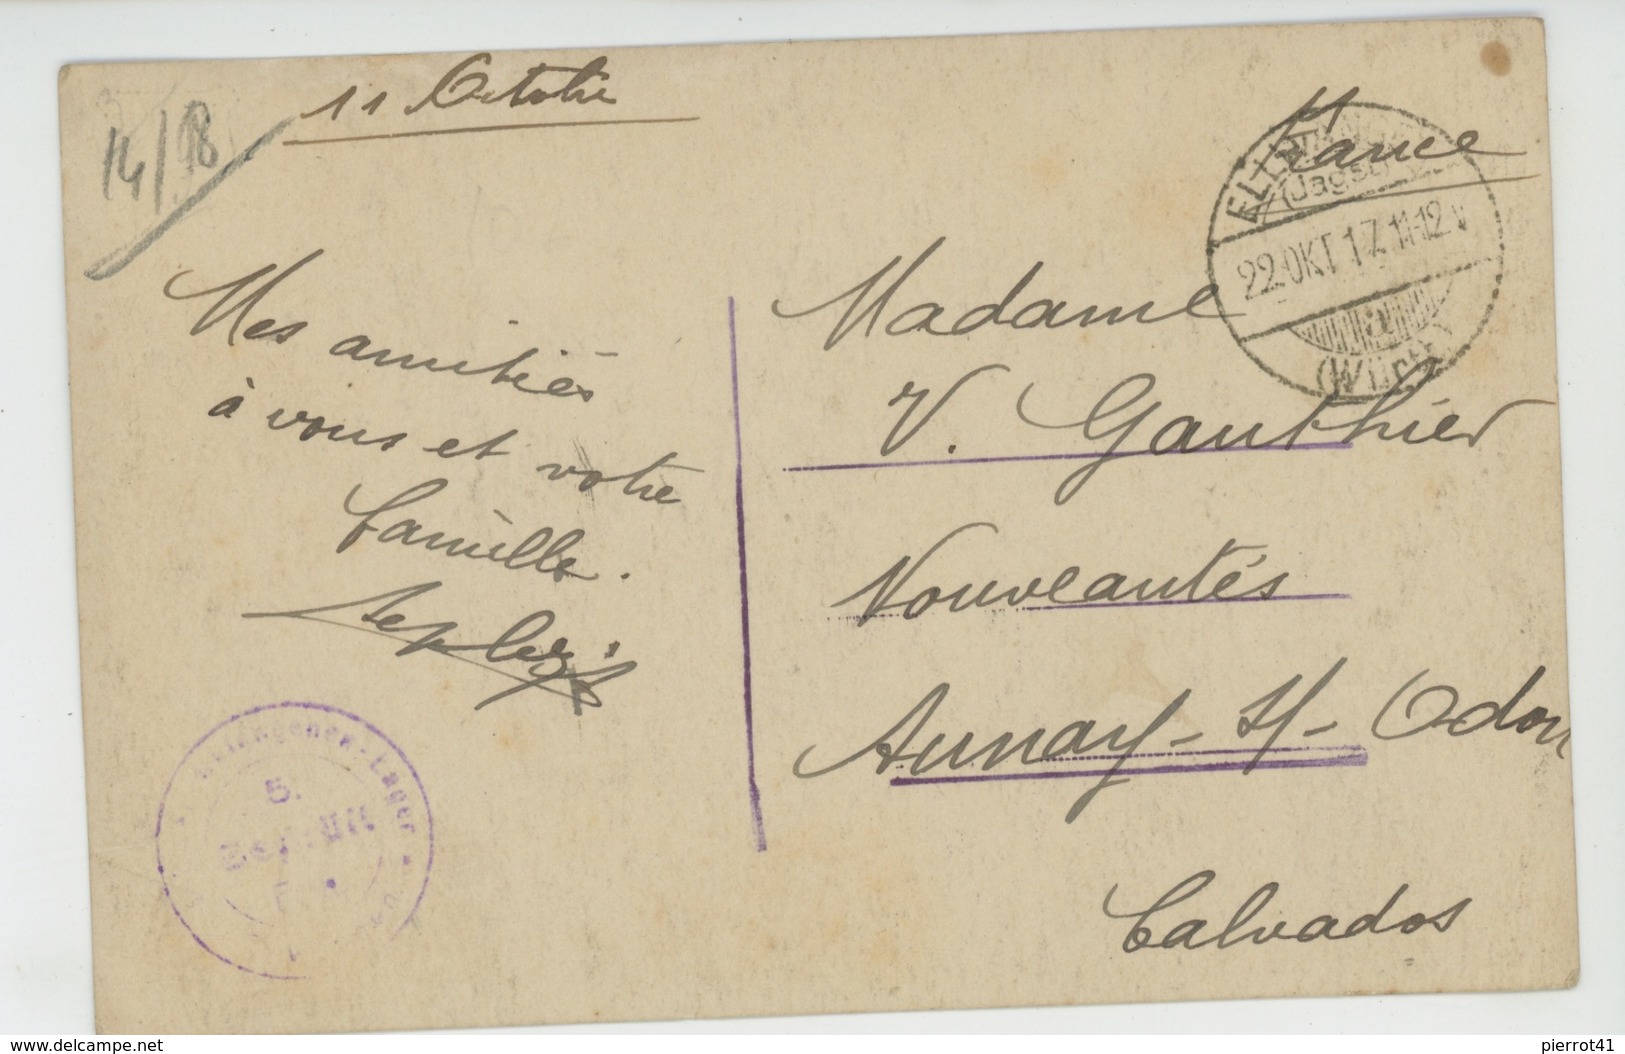 11 Octobre
14/18
France
ELLWANGEN
(Jagst)
22.OKT.17.11-12 V
a
(Württ)
Mes amitiés
à vous et votre
famille.
Madame
V. Gauthier
Nouveautés
Aunay-s/-Odon
Calvados
-Lager
5.
www.delcampe.net
pierrot41